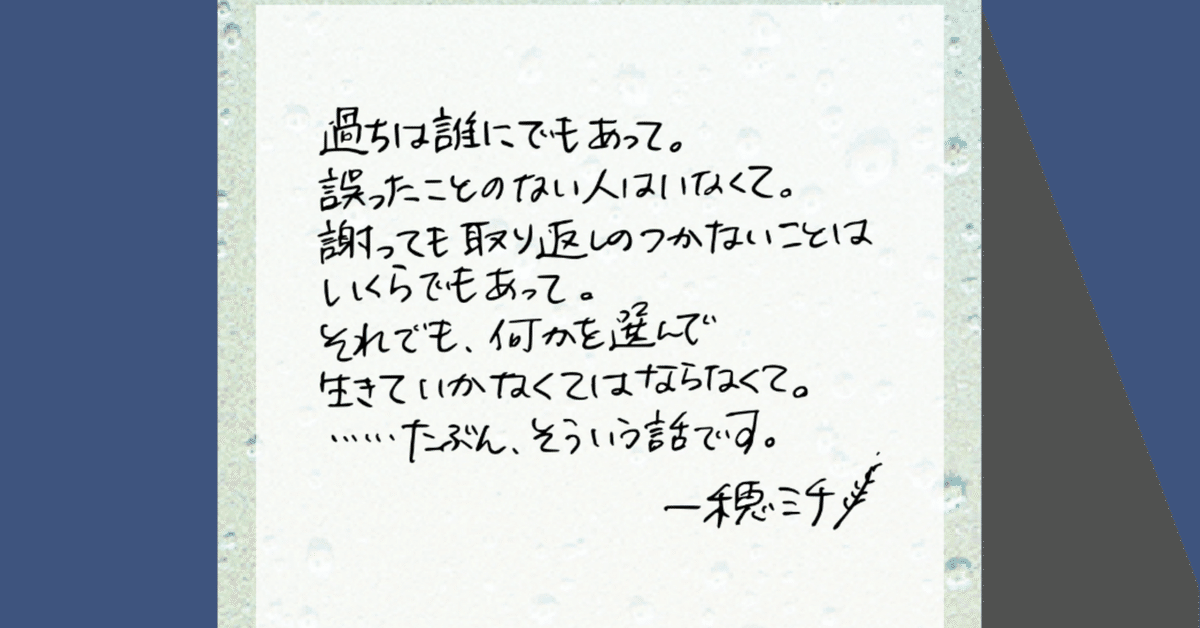 過ちは誰にでもあって。
誤ったことのない人はいなくて。
謝っても取り返しのつかないことは
いくらでもあって。
それでも、何かを選んで
生きていかなくてはならなくて。
……たぶん、そういう話です。
一穂ミチ